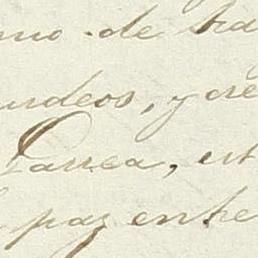 mo de tra
udeos, y cre
Larrea, est
paz entre